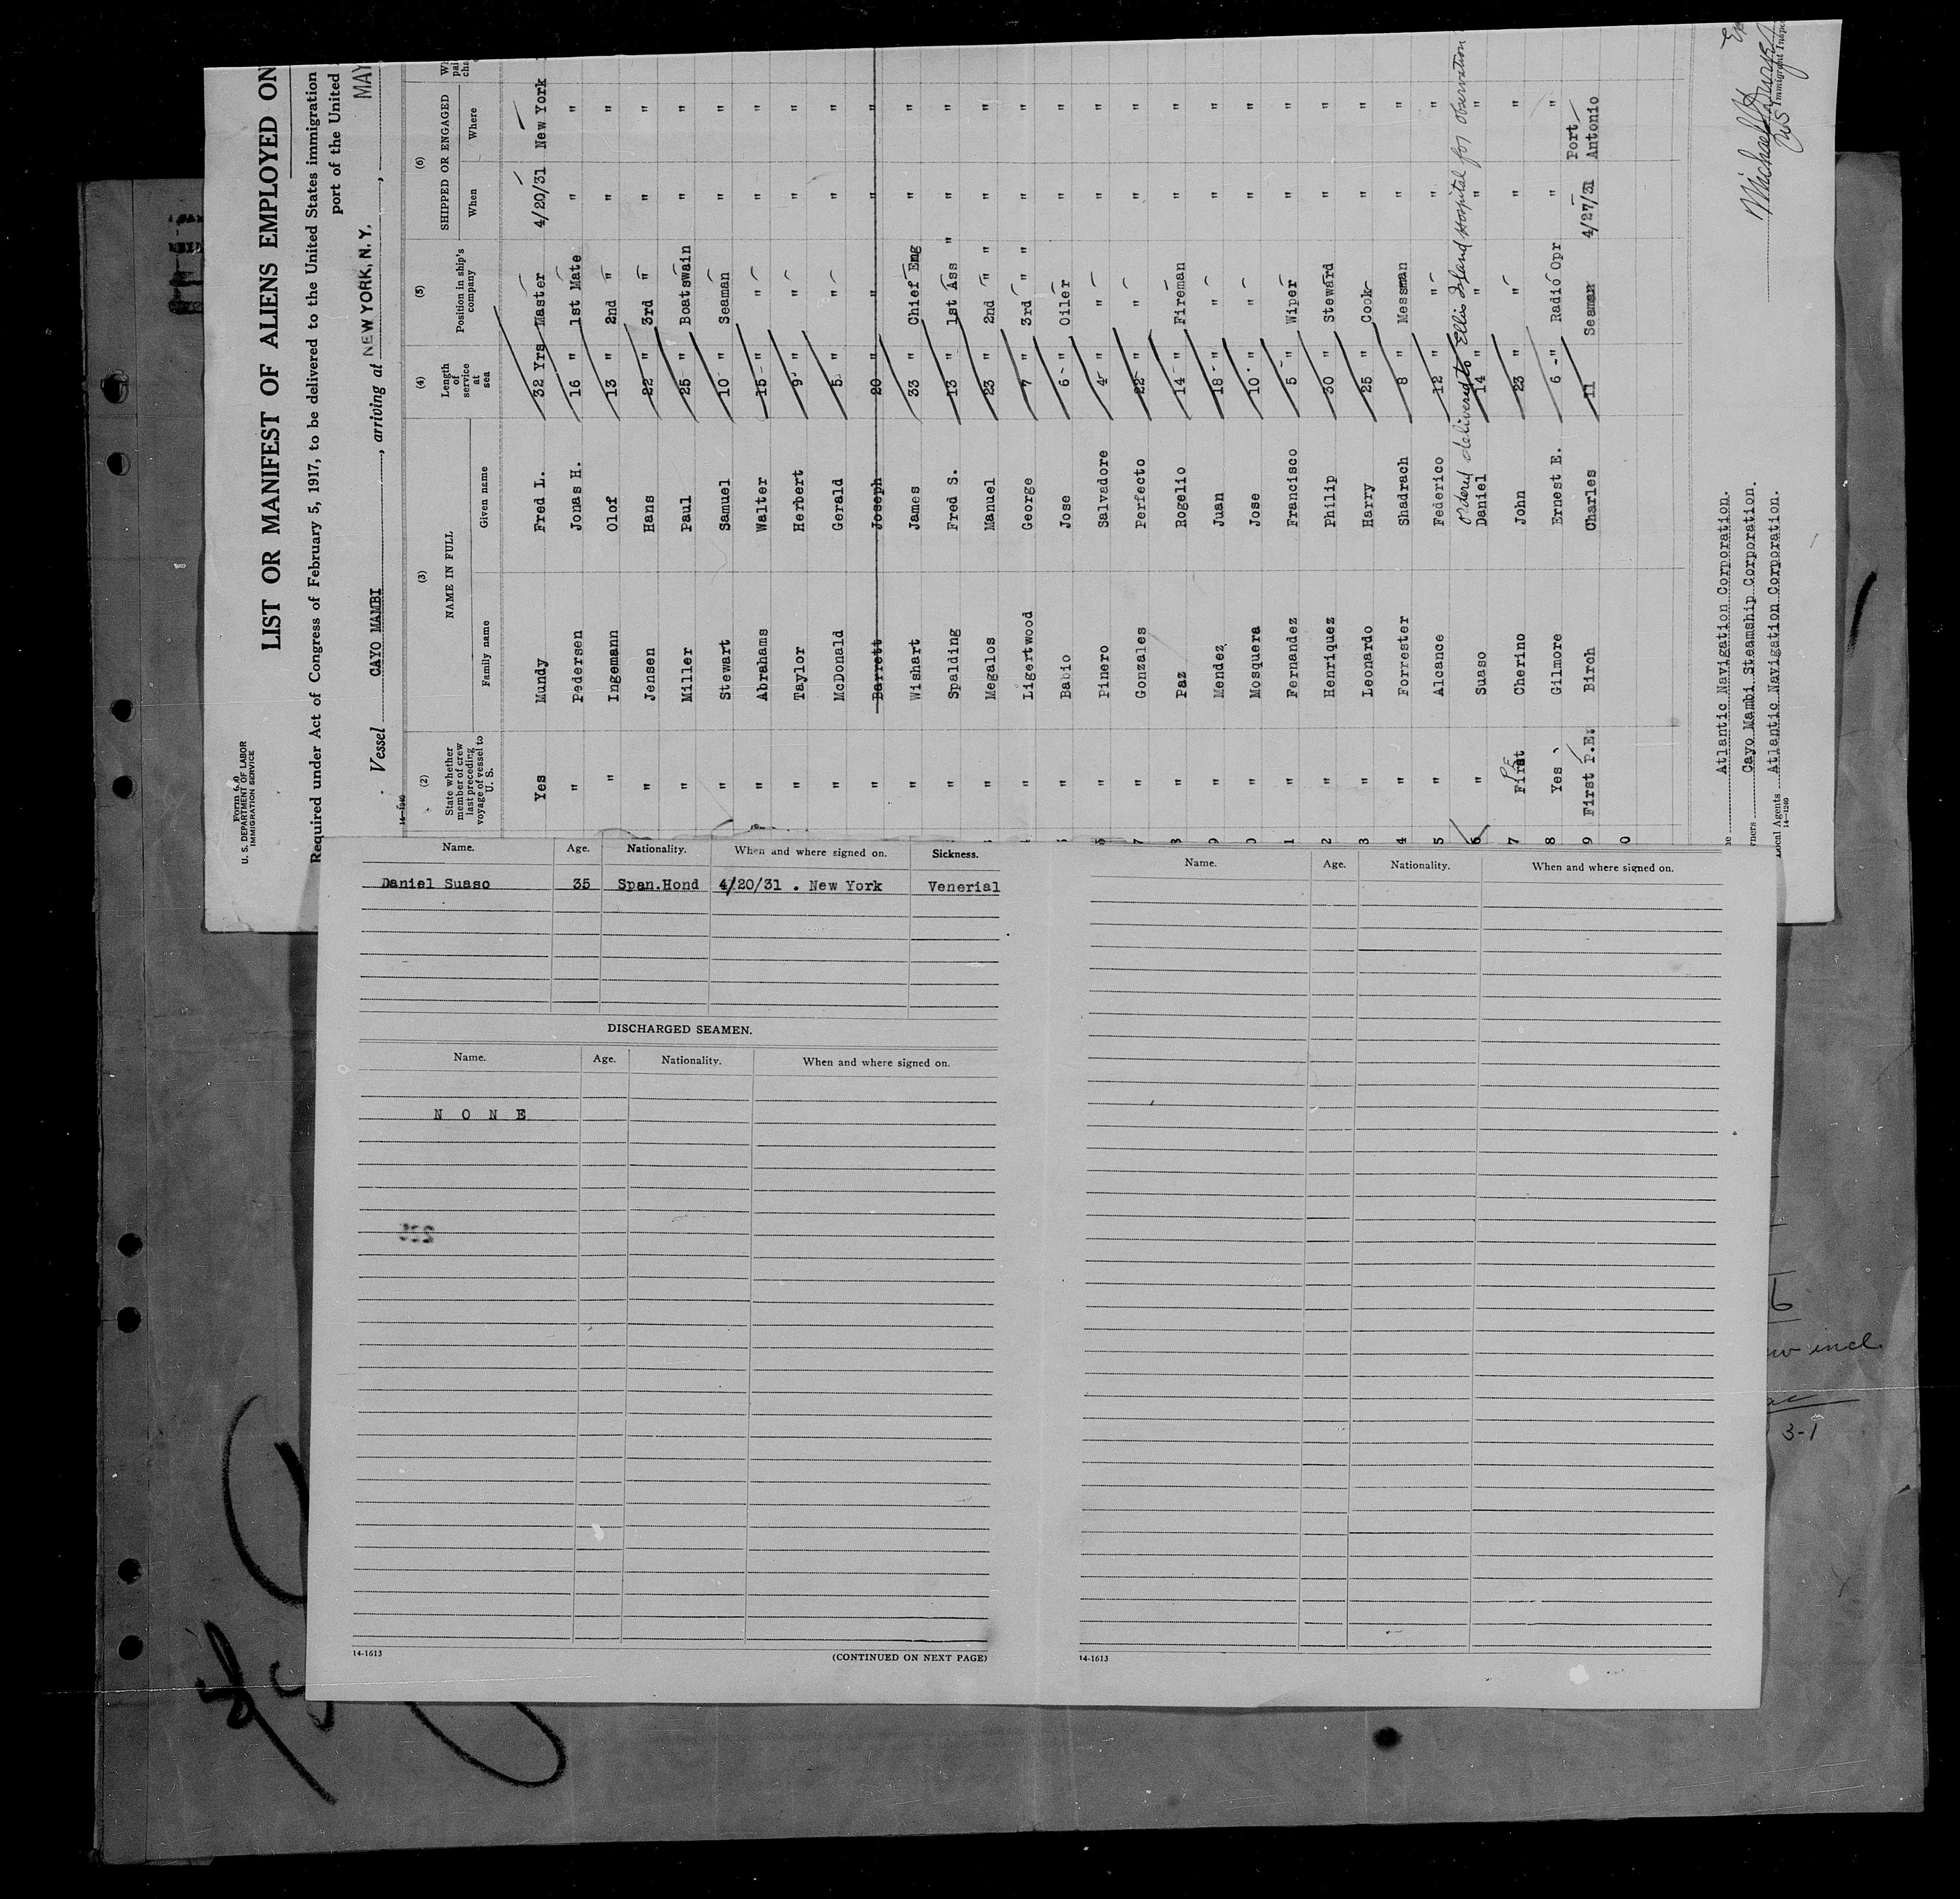 Form 680
U. S. DEPARTMENT OF LABOR
IMMIGRATION SERVICE
LIST OR MANIFEST OF ALIENS EMPLOYED ON
Required under Act of Congress of February 5, 1917, to be delivered to the United States immigration
port of the United
Vessel CAYO MAMBI, arriving at NEW YORK, N. Y., MAY
14—1240
(2) (3) (4) (5) (6)
State whether member of crew last preceding voyage of vessel to U. S. NAME IN FULL Length of service at sea Position in ship's company SHIPPED OR ENGAGED
Family name Given name When Where
Yes Mundy Fred L. 32 Yrs Master 4/20/31 New York
" Pedersen Jonas H. 16 " 1st Mate " "
" Ingemann Olof 13 " 2nd " " "
" Jensen Hans 22 " 3rd " " "
" Miller Paul 25 " Boatswain " "
" Stewart Samuel 10 " Seaman " "
" Abrahams Walter 15 " " " "
" Taylor Herbert 9 " " " "
" McDonald Gerald 5 " " " "
" Barrett Joseph 20 " " " "
" Wishart James 33 " Chief Eng " "
" Spalding Fred S. 13 " 1st Ass " " "
" Megalos Manuel 23 " 2nd " " " "
" Ligertwood George 7 " 3rd " " " "
" Babio Jose 6 " Oiler " "
" Pinero Salvadore 4 " " " "
7 " Gonzales Perfecto 22 " " " "
8 " Paz Rogelio 14 " Fireman " "
9 " Mendez Juan 18 " " " "
0 " Mosquera Jose 10 " " " "
1 " Fernandez Francisco 5 " Wiper " "
2 " Henriquez Philip 30 " Steward " "
3 " Leonardo Harry 25 " Cook " "
4 " Forrester Shadrach 8 " Messman " "
5 " Alcance Federico 12 " " " "
Ordered delivered to Ellis Island Hospital for observation
6 " Suaso Daniel 14 " " " "
7 First PE Cherino John 23 " " " "
8 Yes Gilmore Ernest E. 6 " Radio Opr " "
9 First P.E. Birch Charles 11 Seaman 4/27/31 Port Antonio
0
Atlantic Navigation Corporation.
Cayo Mambi Steamship Corporation.
Local Agents Atlantic Navigation Corporation.
14—1240
Immigrant Inspe
Name. Age. Nationality. When and where signed on. Sickness.
Daniel Suaso 35 Span.Hond 4/20/31 . New York Venerial
DISCHARGED SEAMEN.
Name. Age. Nationality. When and where signed on.
N O N E
14-1613
(CONTINUED ON NEXT PAGE)
Name. Age. Nationality. When and where signed on.
14-1613
incl.
3-1